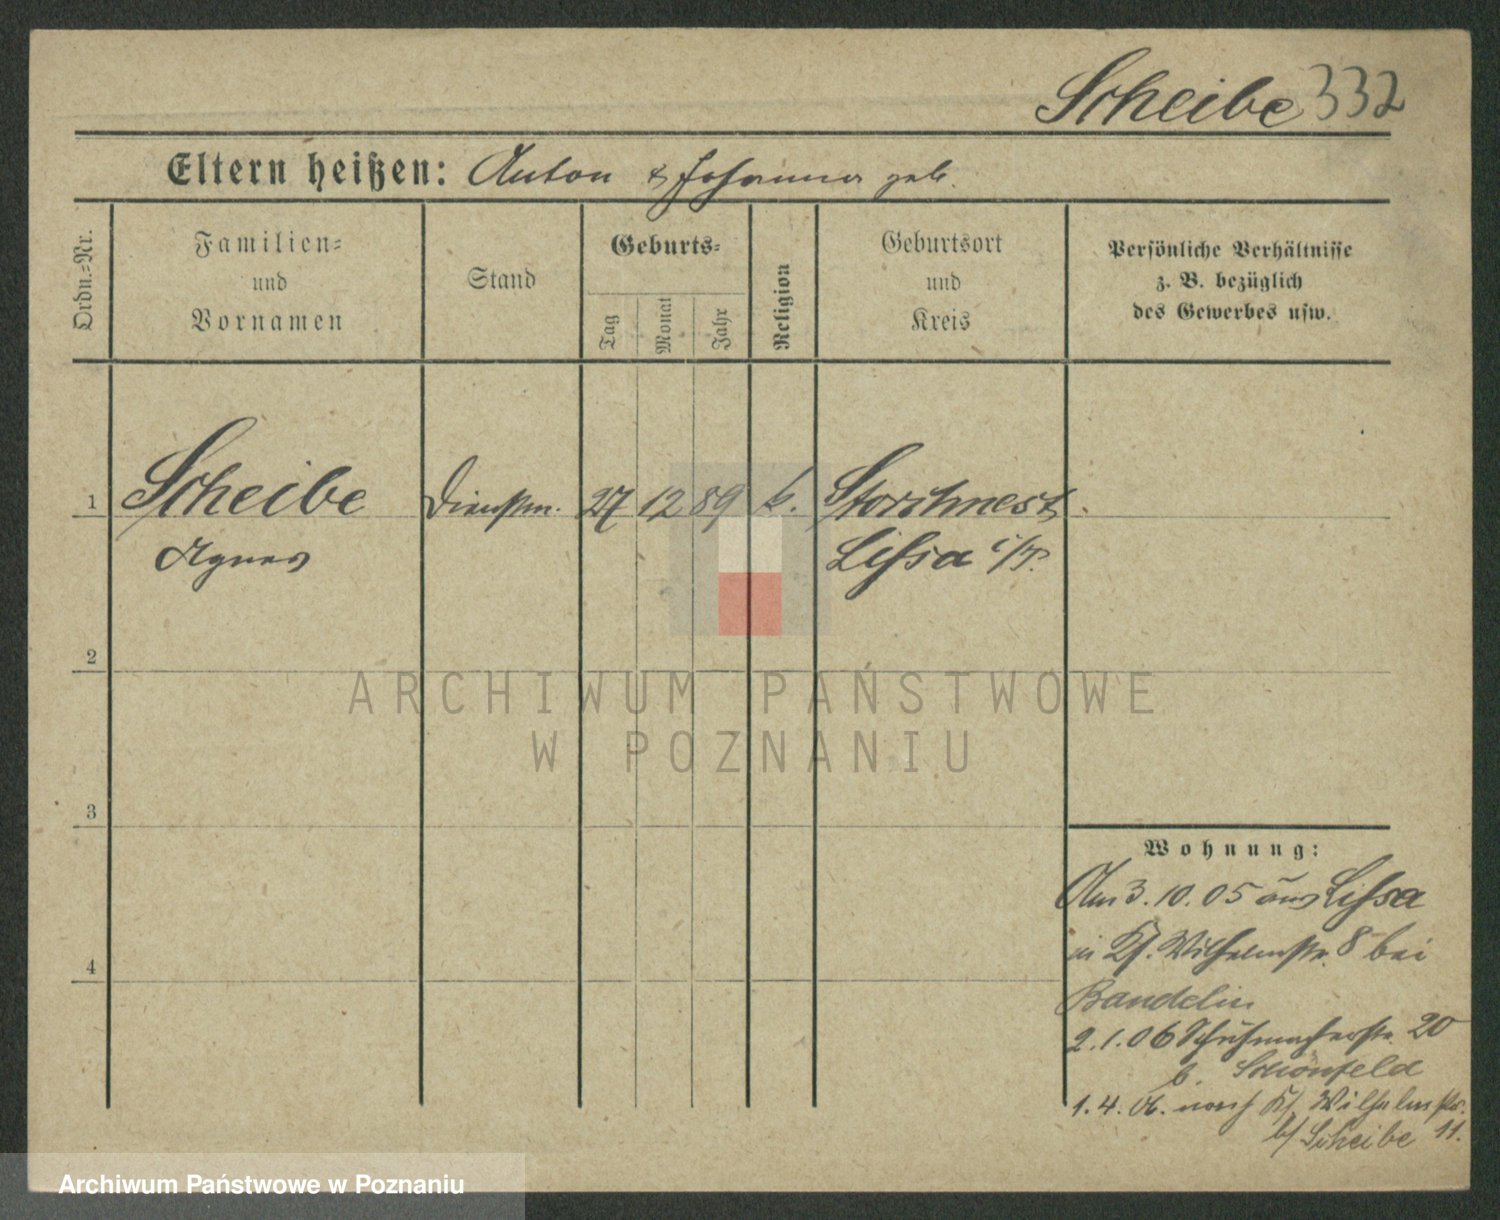 Scheibe 332
Eltern heißen: Anton & Johanna geb.
Ordn.=Nr.
Familien=
und
Vornamen
Stand
Geburts=
Tag
Monat
Jahr
Religion
Geburtsort
und
Kreis
Persönliche Verhältnisse
z. B. bezüglich
des Gewerbes usw.
1 Scheibe Dienstm. 27 12 89 k. Storchnest
Agnes Lissa i/P.
2
3
4
Wohnung:
Am 3.10.05 aus Lissa
in Wilhelmstr. 8 bei
Bandelin
2.1.06 Schuhmacherstr. 20
b. Schönfeld
1.4.06. nach Wilhelmstr.
b/ Scheibe 11.
ARCHIWUM PAŃSTWOWE
W POZNANIU
Archiwum Państwowe w Poznaniu